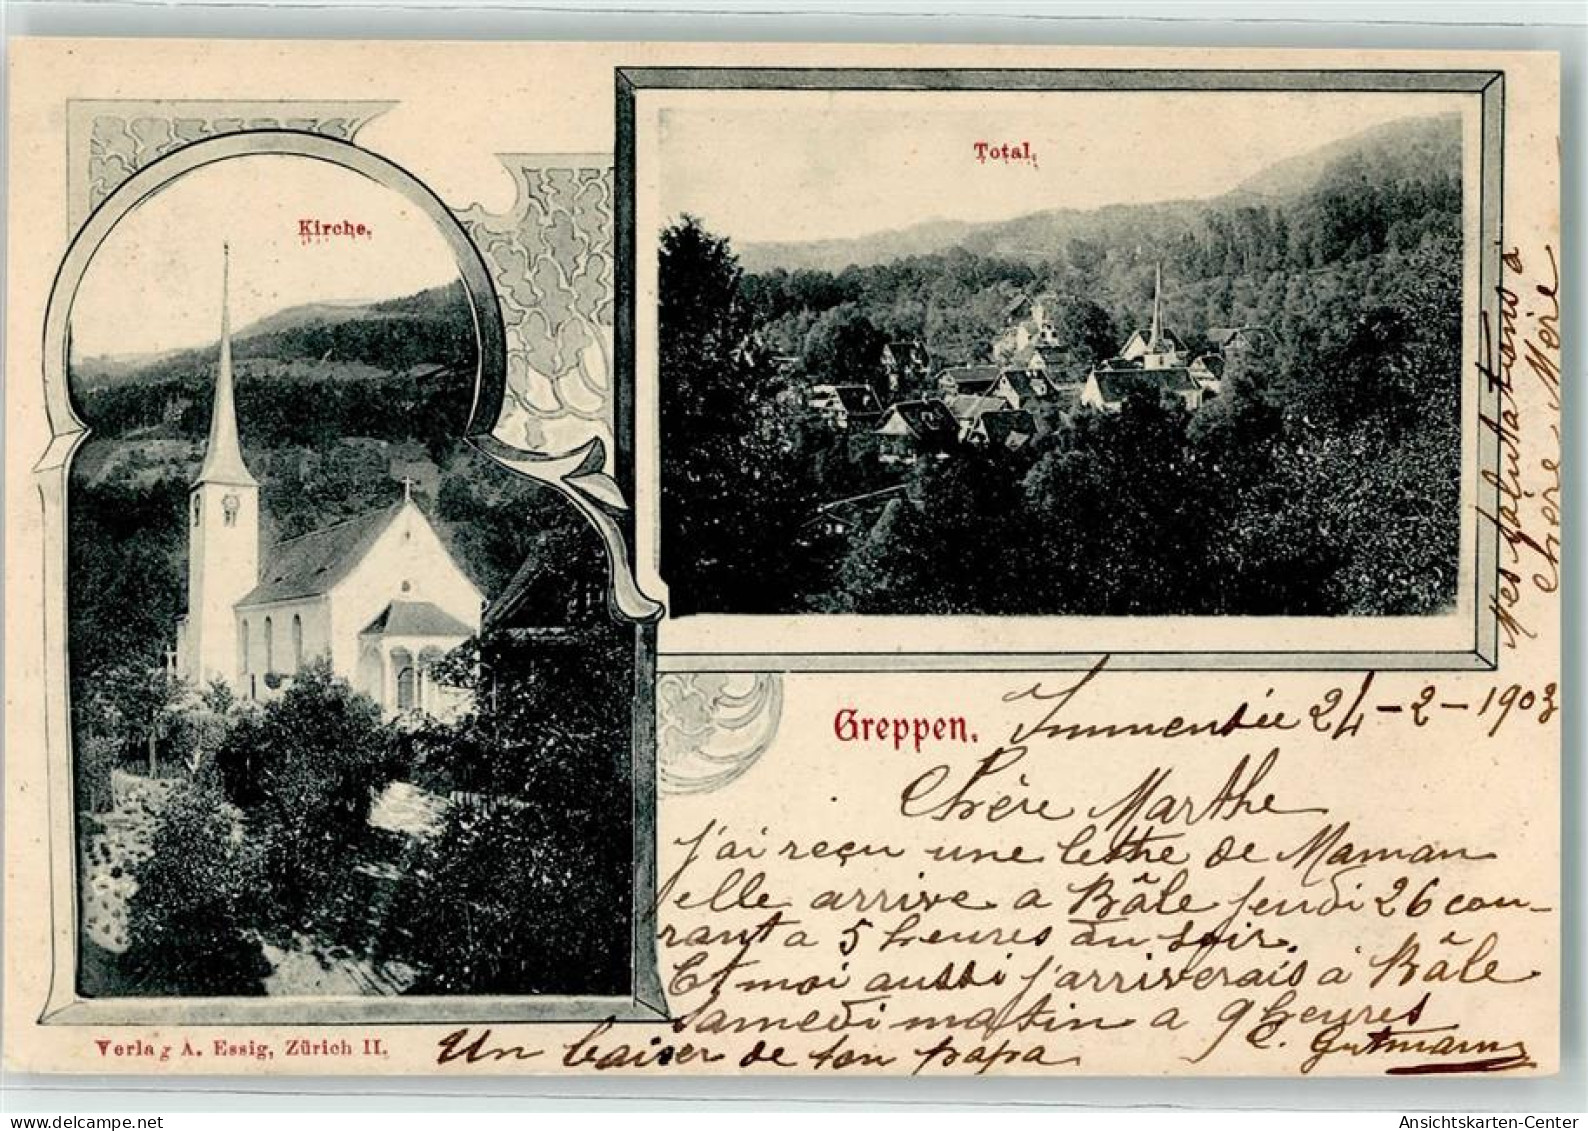 Kirche.
Total.
Greppen.
Immensée 24-2-1903
Chère Marthe
J'ai reçu une lettre de Maman
elle arrive a Bâle jeudi 26 cou-
rant a 5 heures du soir.
Et moi aussi j'arriverais à Bâle
samedi matin a 9 heures
Un baiser de ton papa
C. Gutmann
Mes salutations a
chère Mère
Verlag A. Essig, Zürich II.
www.delcampe.net
Ansichtskarten-Center